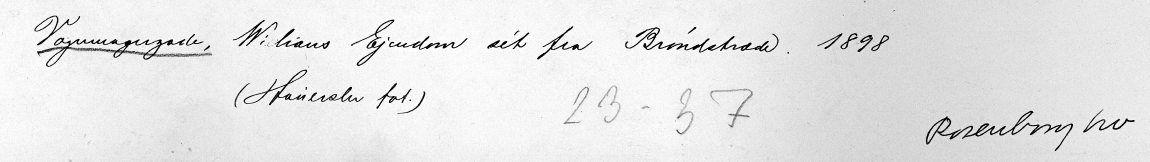 Vognmagergade, Wilians Ejendom sét fra Brøndstræde. 1898
(Hauerslev fot.)
23-37
Rosenborg kv